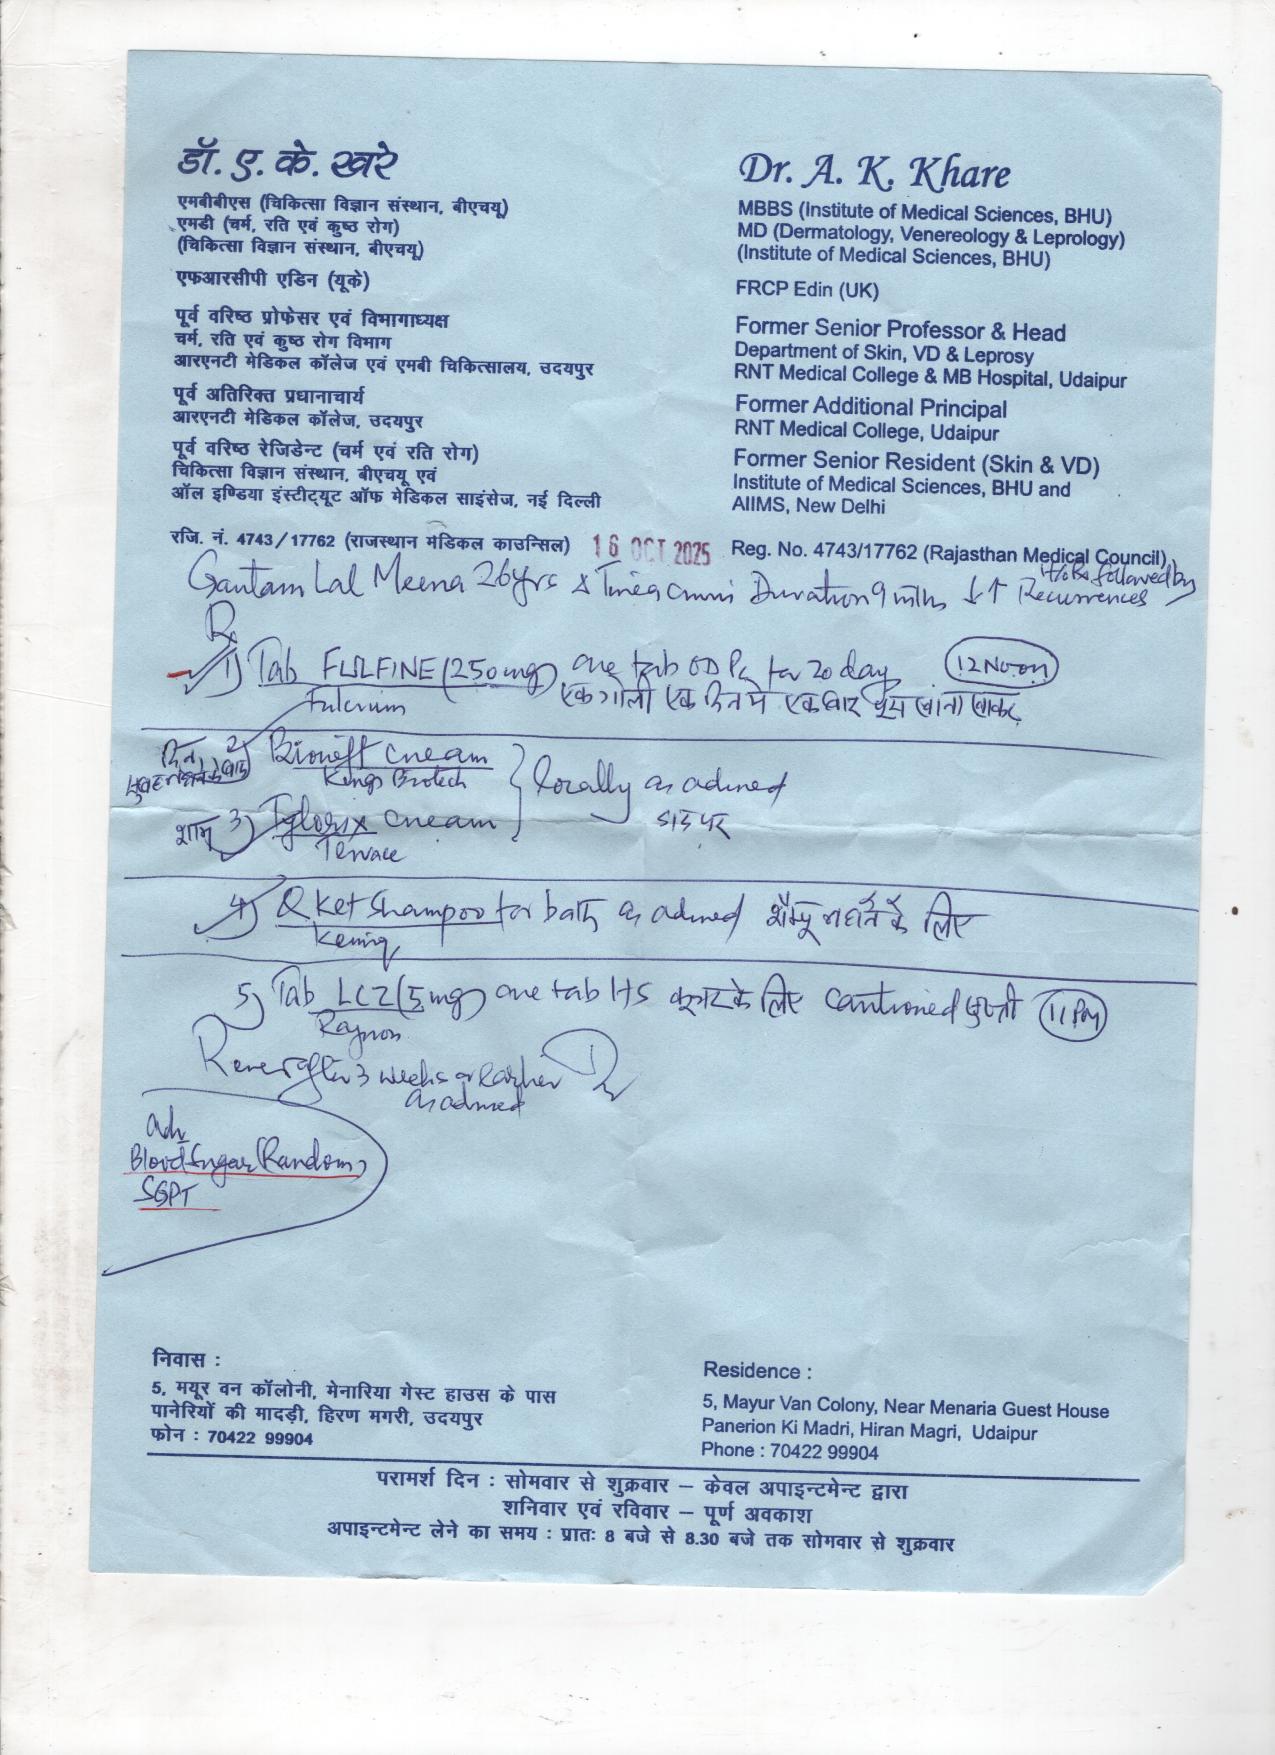 डॉ. ए. के. खरे
एमबीबीएस (चिकित्सा विज्ञान संस्थान, बीएचयू)
एमडी (चर्म, रति एवं कुष्ठ रोग)
(चिकित्सा विज्ञान संस्थान, बीएचयू)
एफआरसीपी एडिन (यूके)
पूर्व वरिष्ठ प्रोफेसर एवं विभागाध्यक्ष
चर्म, रति एवं कुष्ठ रोग विभाग
आरएनटी मेडिकल कॉलेज एवं एमबी चिकित्सालय, उदयपुर
पूर्व अतिरिक्त प्रधानाचार्य
आरएनटी मेडिकल कॉलेज, उदयपुर
पूर्व वरिष्ठ रेजिडेन्ट (चर्म एवं रति रोग)
चिकित्सा विज्ञान संस्थान, बीएचयू एवं
ऑल इण्डिया इंस्टीट्यूट ऑफ मेडिकल साइंसेज, नई दिल्ली
रजि. नं. 4743/17762 (राजस्थान मेडिकल काउन्सिल)
Dr. A. K. Khare
MBBS (Institute of Medical Sciences, BHU)
MD (Dermatology, Venereology & Leprology)
(Institute of Medical Sciences, BHU)
FRCP Edin (UK)
Former Senior Professor & Head
Department of Skin, VD & Leprosy
RNT Medical College & MB Hospital, Udaipur
Former Additional Principal
RNT Medical College, Udaipur
Former Senior Resident (Skin & VD)
Institute of Medical Sciences, BHU and
AIIMS, New Delhi
Reg. No. 4743/17762 (Rajasthan Medical Council)
16 OCT 2025
Gautam Lal Meena 26yrs Tinea cruris Duration 9 mths ↓↑ H/o Rx followed by
Recurrences
Rx
1) Tab FULFINE (250mg) one tab OD PC for 20 day 12 Noon
Fulcrum एक गोली एक दिन में एक बार खाना खाकर
2) cream
Kings Biotech
locally as advised
शाम 3) cream
दाद पर
4) Q Ket Shampoo for bath as advised शैम्पू नहाने के लिए
5) Tab LCZ (5mg) one tab HS के लिए cautioned सुस्ती 11 PM
Review after 3 weeks or earlier
as advised
adv
Blood Sugar (Random)
SGPT
निवास :
5, मयूर वन कॉलोनी, मेनारिया गेस्ट हाउस के पास
पानेरियों की मादड़ी, हिरण मगरी, उदयपुर
फोन : 70422 99904
Residence :
5, Mayur Van Colony, Near Menaria Guest House
Panerion Ki Madri, Hiran Magri, Udaipur
Phone : 70422 99904
परामर्श दिन : सोमवार से शुक्रवार – केवल अपाइन्टमेन्ट द्वारा
शनिवार एवं रविवार – पूर्ण अवकाश
अपाइन्टमेन्ट लेने का समय : प्रातः 8 बजे से 8.30 बजे तक सोमवार से शुक्रवार